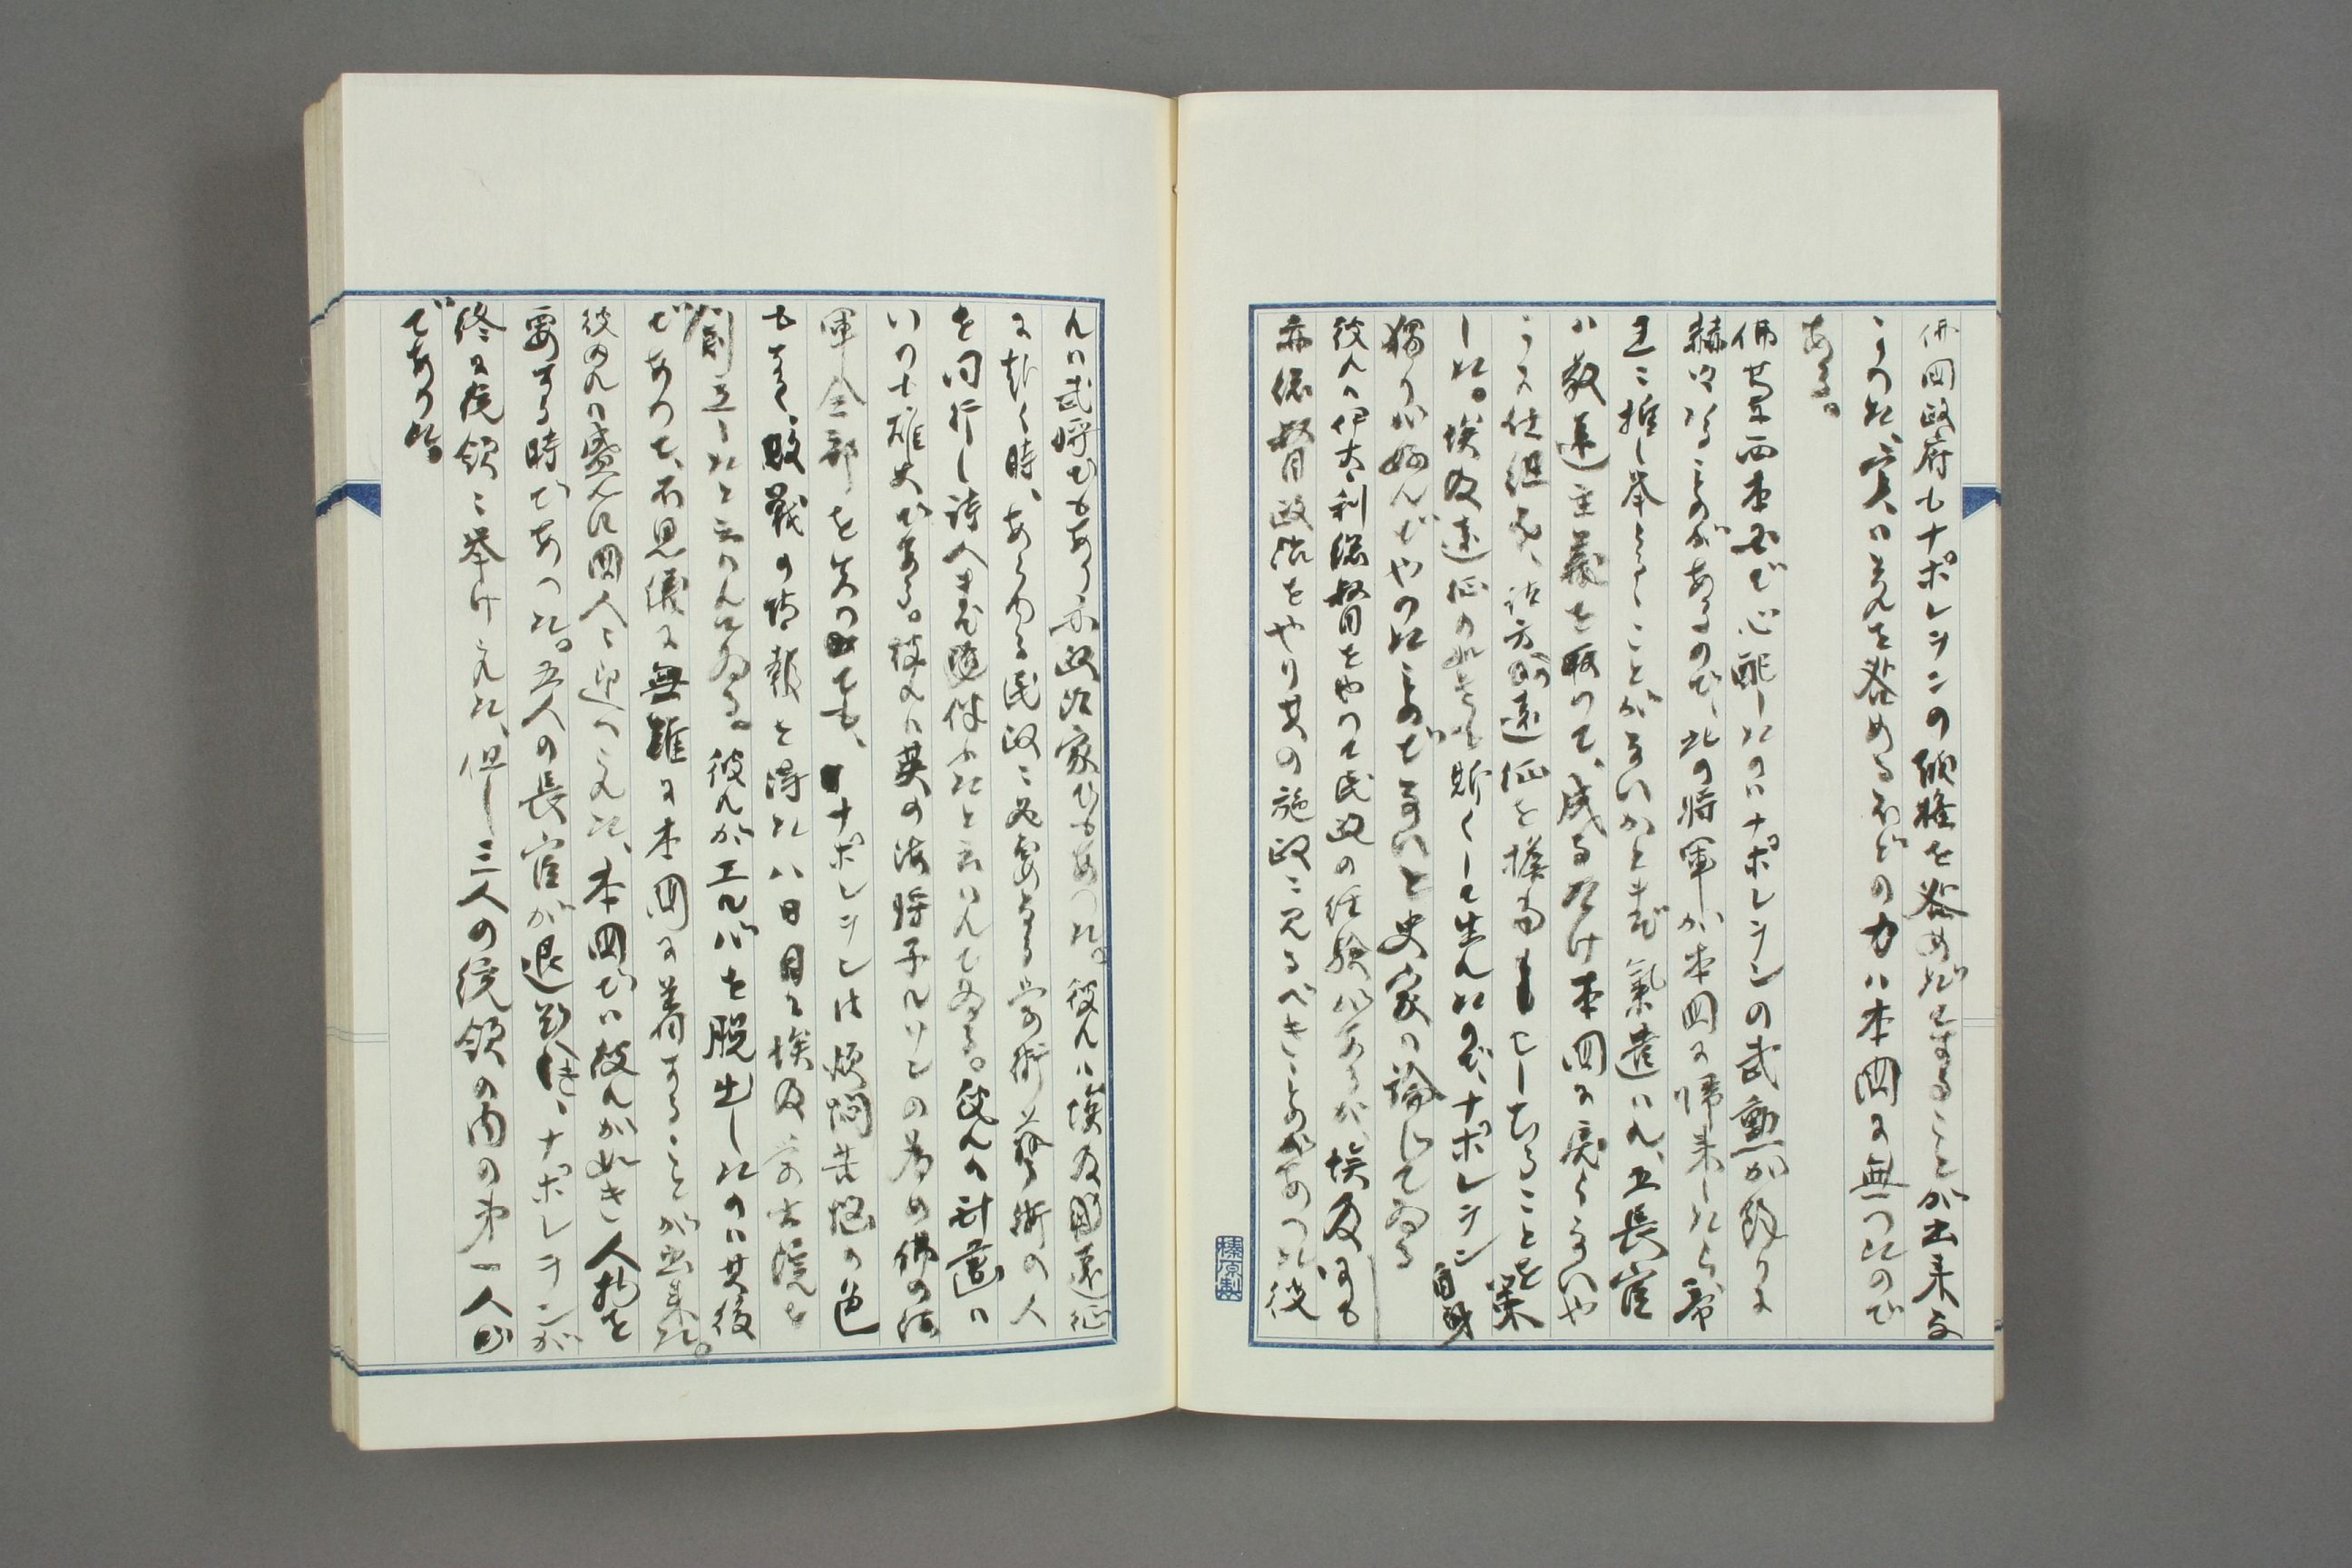 佛国政府もナポレヲンの
を咎めずにすることが出来な
かつた、実はそんを咎めるほどの力は本国に無つたので
ある。
佛其本国で心配したのはナポレヲンの武勲が餘りに
赫々たるものがあるので、此の将軍が本国に帰来したら、帝
王に推し挙らるることがないかとまで氣遣はれ、五長官
は敬遠主義を取つて、成るたけ本国に戻らないや
うに仕組み、諸方面遠征を擇ましむることを策
した。埃及遠征の如きも斯くして生れたので、ナポレヲン自身
獨り好んでやつたことでないと史家は論じてゐる
彼んは伊太利総督をやつて民政の任験があるが、埃及でも
亦総督政治をやり其の施政に見るべきことがあつた彼
んは武将でもあり亦政治家でもあつた。彼んは埃及遠征
に赴く時、あらゆる民政に必要なる学術芸術の人
を同行し詩人まで随伴したと云はれてゐる。彼んの計画は
いつも雄大である。彼んは英の海将子ルソンの為め佛の海
軍全部を失つても、ナポレヲンは煩悶失望の色
もなく、敗戦の情報を得た八日目に埃及学士院を
創立したと云はれてゐる。彼んが エルバを脱出したのは其後
であつて、不思儀に無難に本国に着することが出来た。
彼のんは盛んに国人に迎つへられ、本国では彼んが如き人物を
要する時であつた。五人の長官が退き、ナポレヲンが
終に統領に挙げられた、但し三人の統領の内の第一人の
であつた。
榛原製